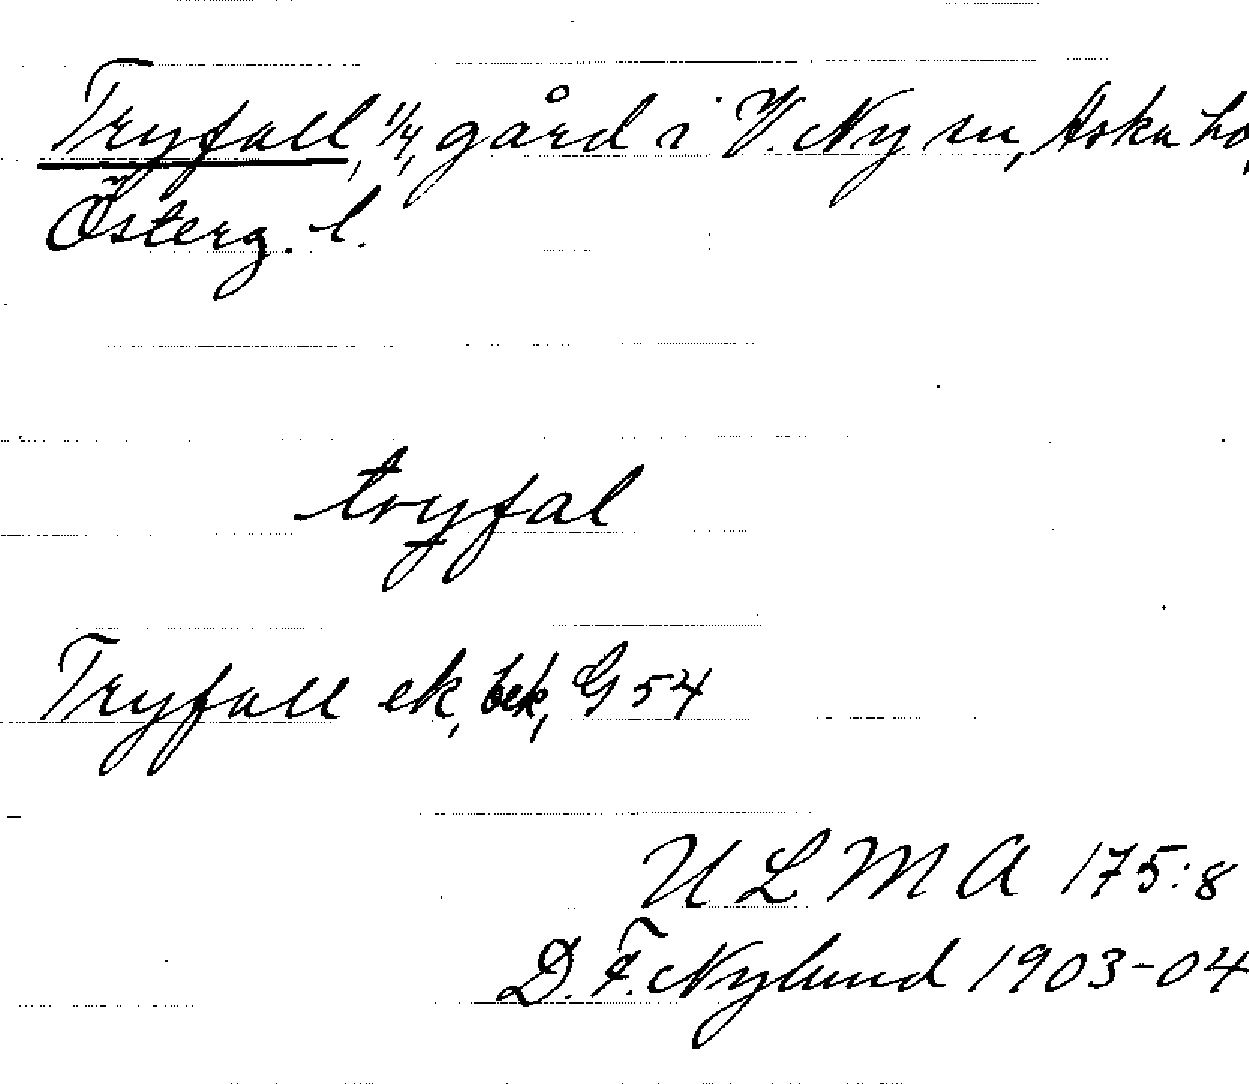 Tryfall, 1/4, gård i V. Ny sn, Aska hd,
Österg. l.
tryfal
Tryfall ek, bek, G 54
ULMA 175:8
D. F. Nylund 1903-04